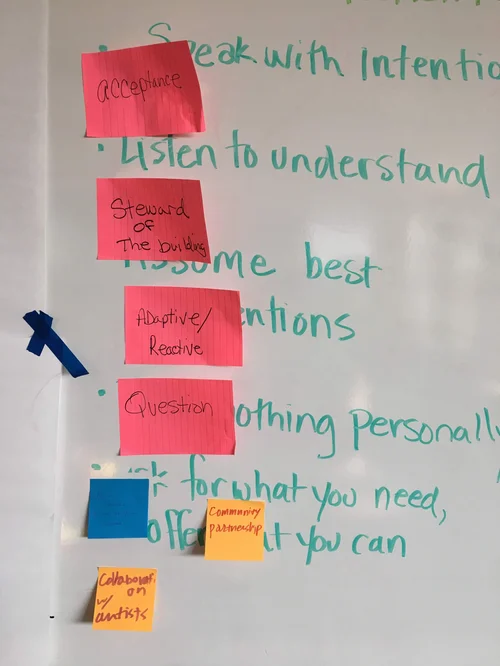 Speak with Intentio
acceptance
• Listen to understand
Steward
of
The building
Assume best
Adaptive/
Reactive
entions
Question
othing personally
k for what you need,
offe
t you can
Community
partnership
Collaborati
on
w/
artists